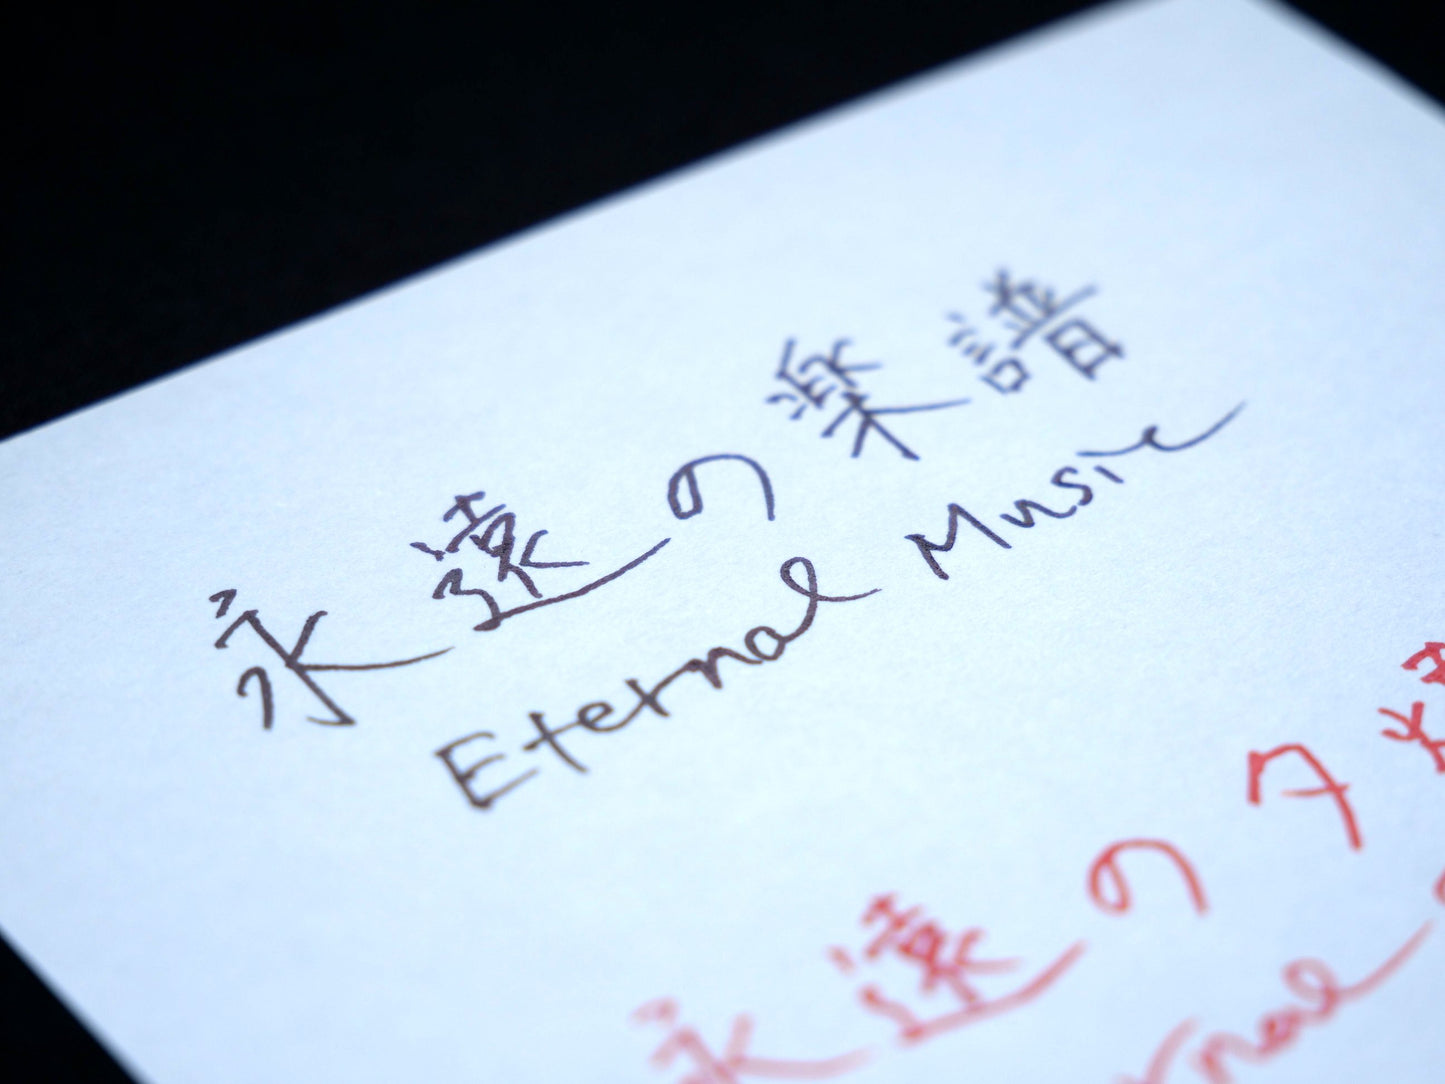 永遠の楽譜
Eternal Music
永遠の